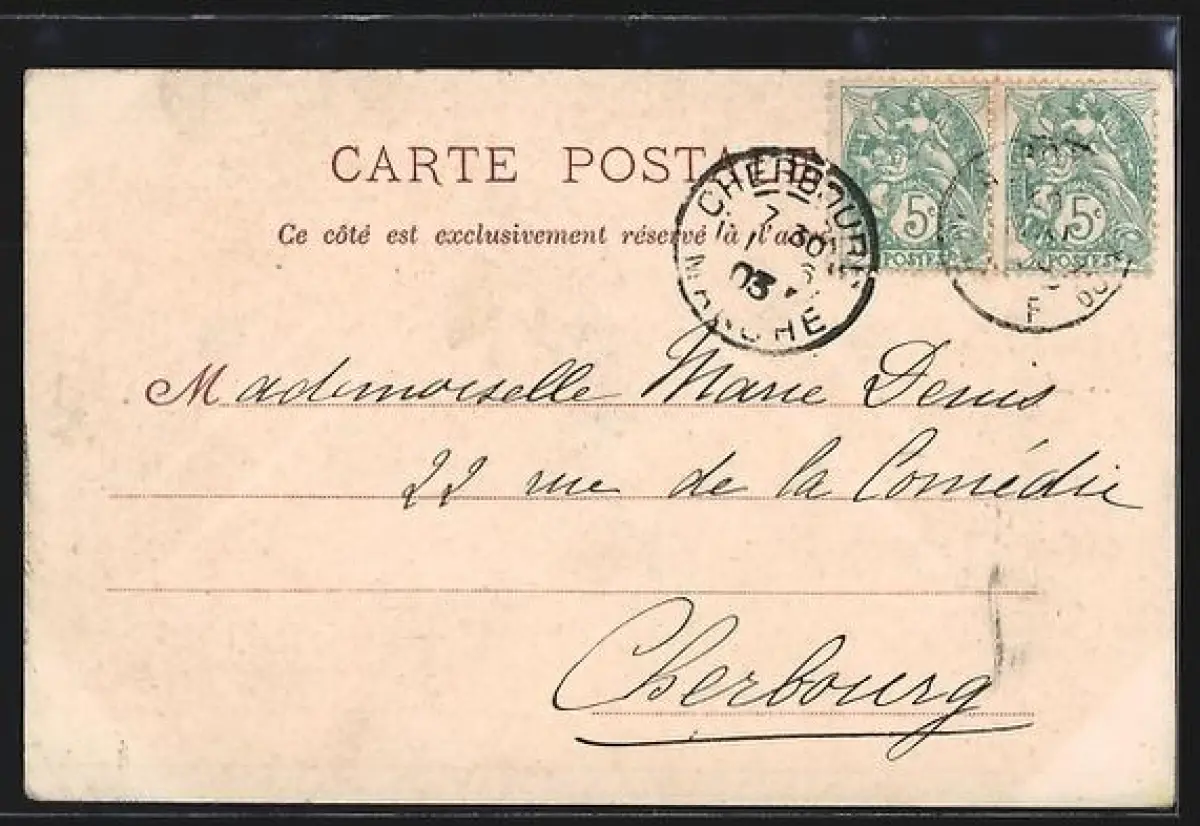 CARTE POSTALE
Ce côté est exclusivement réservé à l'a
CHERBOURG
7 30
03
MANCHE
5c
POSTES
5c
POSTES
F
Mademoiselle Marie Denis
22 rue de la Comédie
Cherbourg